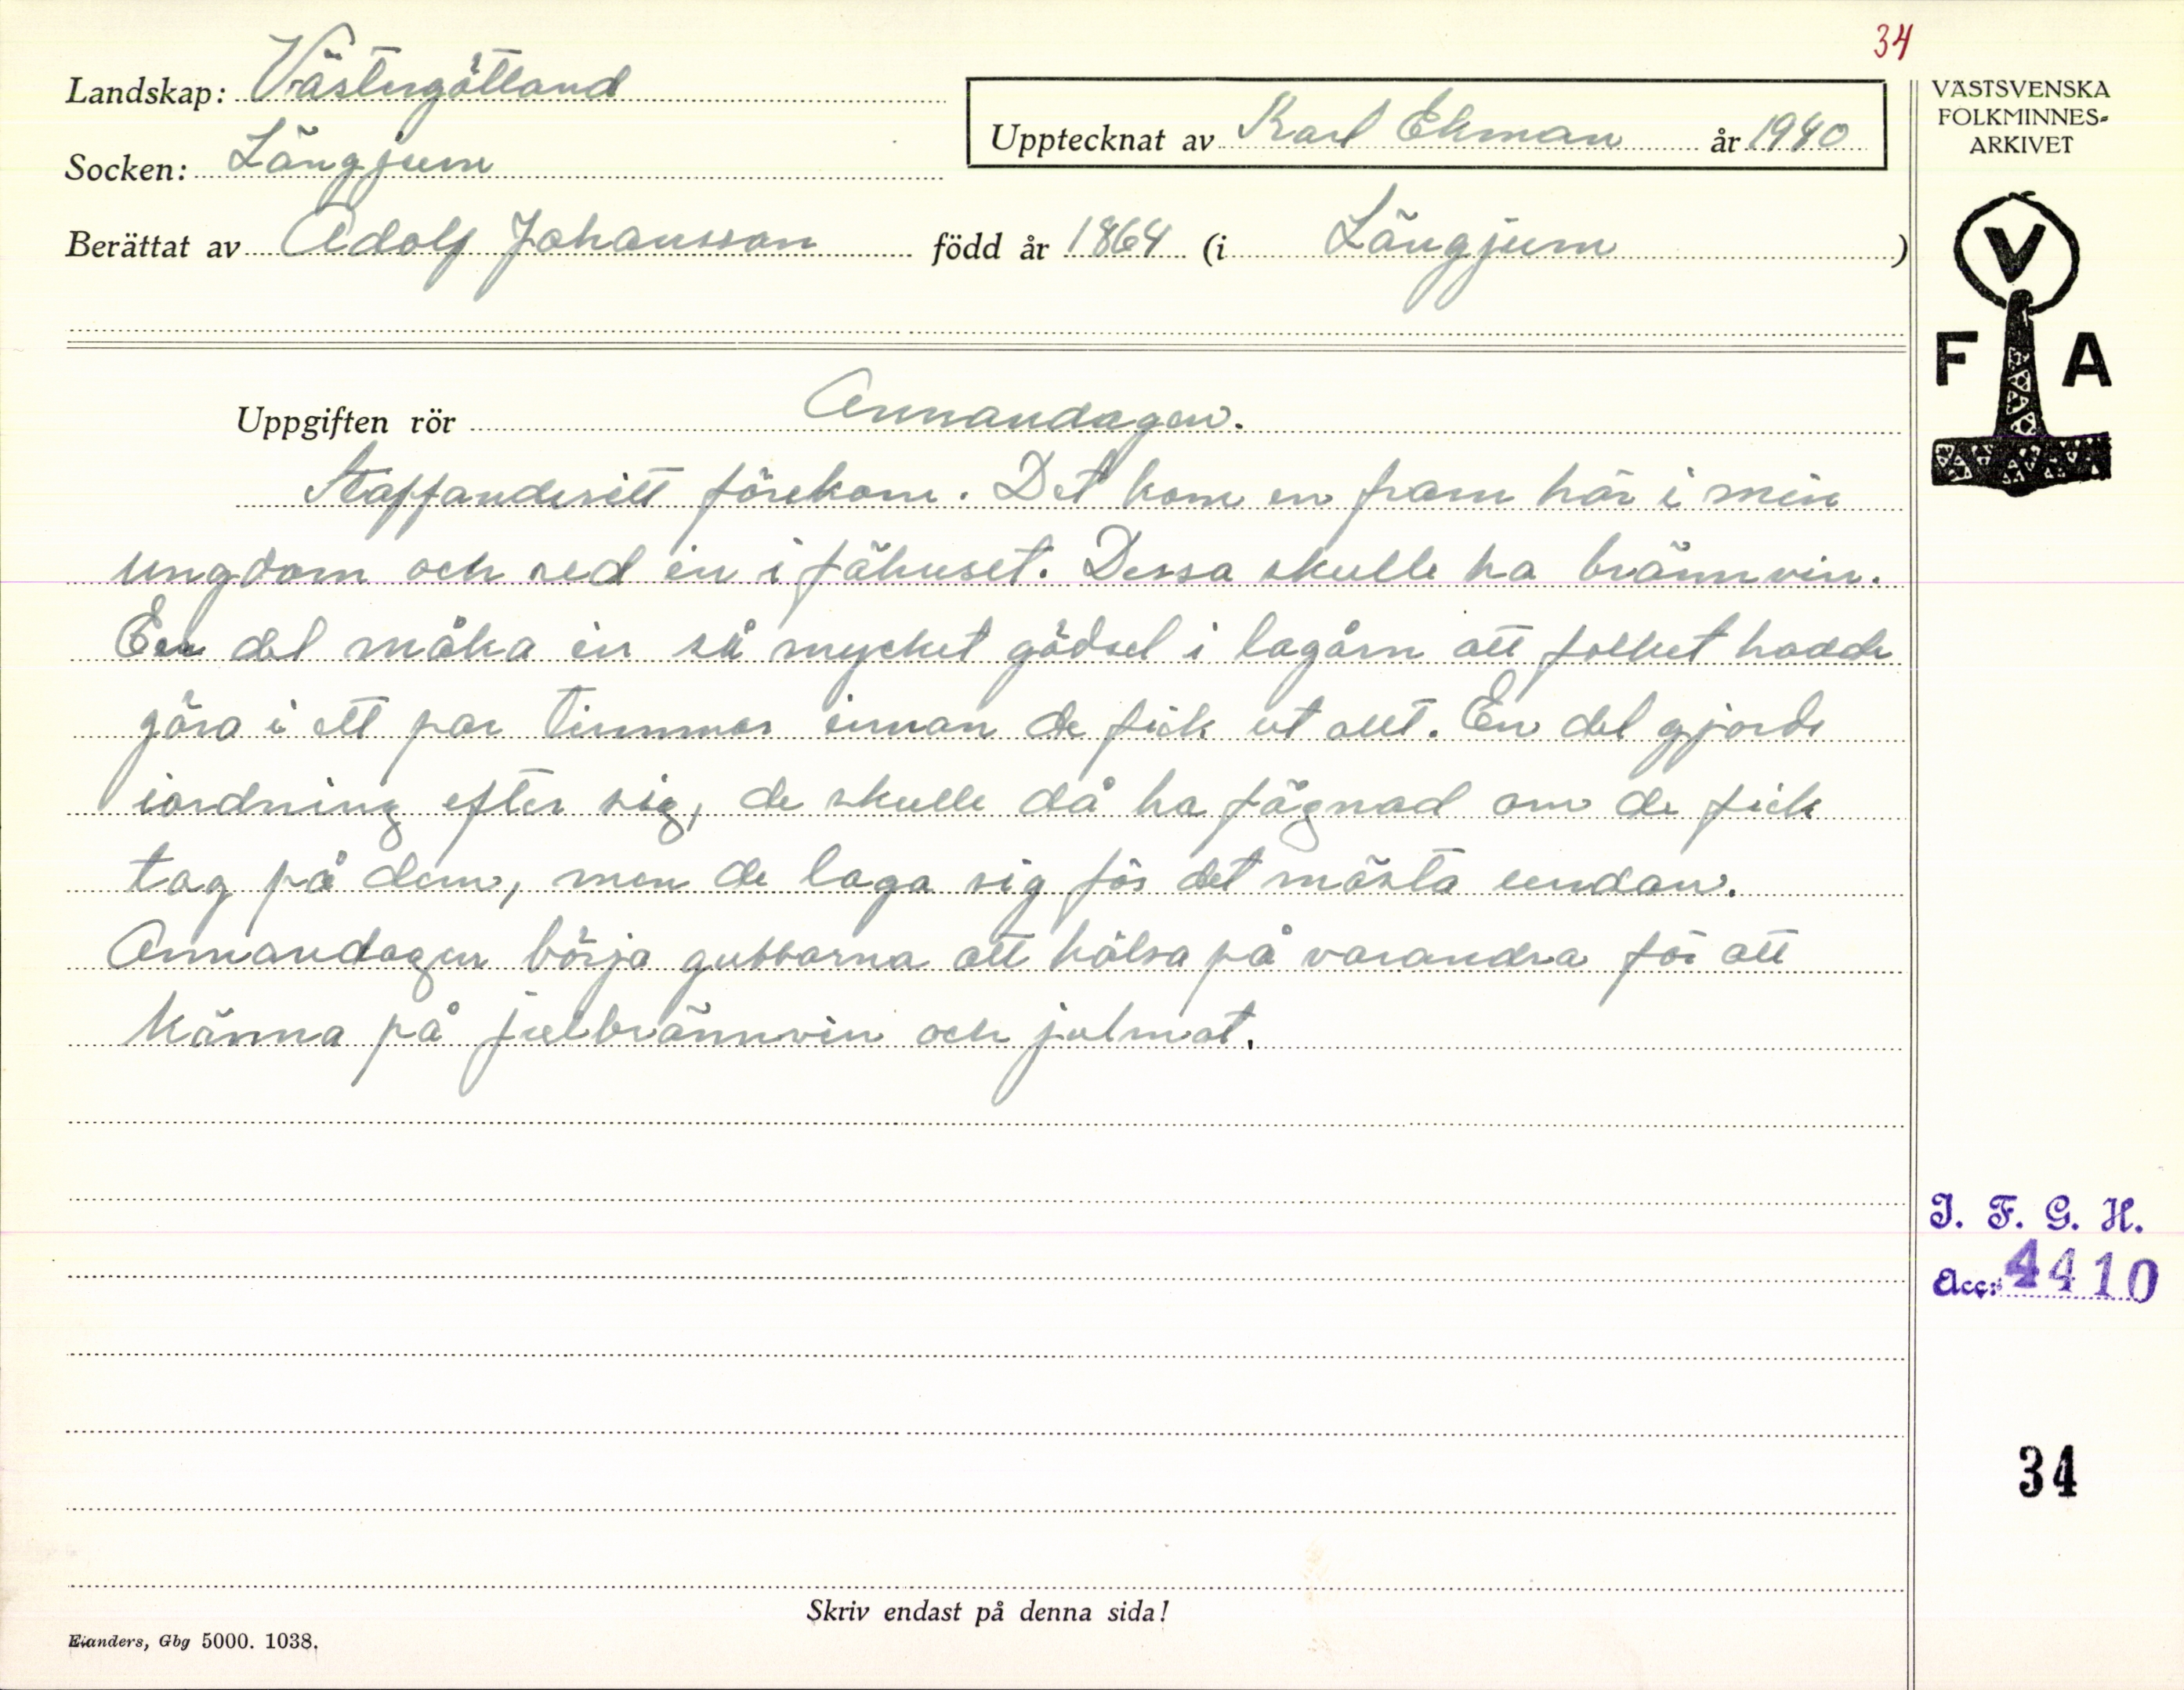 34
Landskap: Västergötland
Upptecknat av Karl Ekman år 1940
VÄSTSVENSKA
FOLKMINNES-
ARKIVET
Socken: Längjum
Berättat av Adolf Johansson född år 1864 (i Längjum)
V
F A
Uppgiften rör Annandagen.
Staffandsritt förekom. Det kom en fram här i min
ungdom och red in i fähuset. Dessa skulle ha brännvin.
En del måka in så mycket gödsel i lagårn att folket hadde
göra i ett par timmar innan de fick ut allt. En del gjorde
iordning efter sig, de skulle då ha fägnad om de fick
tag på dem, men de laga sig för det mästa undan.
Annandagen börja gubbarna att hälsa på varandra för att
känna på julbrännvin och julmat.
I. F. G. H.
Acc: 4410
34
Skriv endast på denna sida!
Elanders, Gbg 5000. 1038.